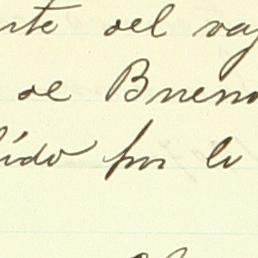 rte del vap
de Bueno
lído por lo